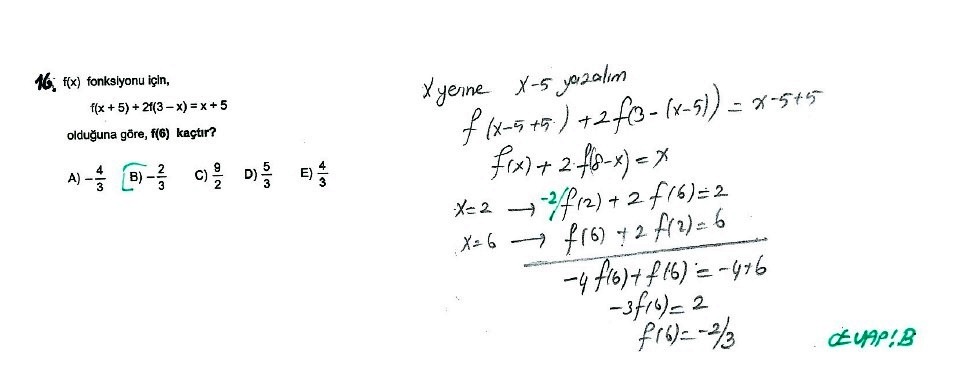 16. f(x) fonksiyonu için,
f(x + 5) + 2f(3 – x) = x + 5
olduğuna göre, f(6) kaçtır?
A) –4/3 B) –2/3 C) 9/2 D) 5/3 E) 4/3
x yerine x-5 yazalım
f(x-5+5) + 2f(3-(x-5)) = x-5+5
f(x) + 2·f(8-x) = x
x=2 → -2/ f(2) + 2 f(6) = 2
x=6 → f(6) + 2 f(2) = 6
-4 f(6) + f(6) = -4+6
-3f(6) = 2
f(6) = -2/3
CEVAP: B